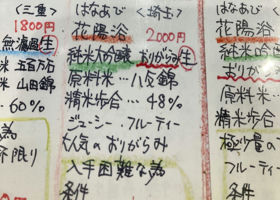 <三重>
1800円
無濾過生
米 五百万石
米 山田錦
60%
為
限り
はなあび <埼玉>
花陽浴 2000円
純米大吟醸 おりがらみ生
原料米…八反錦
精米歩合…48%
ジューシー・フルーティー
大人気のおりがらみ
入手困難な為
条件
はなあび
花陽浴
純米吟
おりか
原料米
精米歩合
極少量の
フルーティ
条件